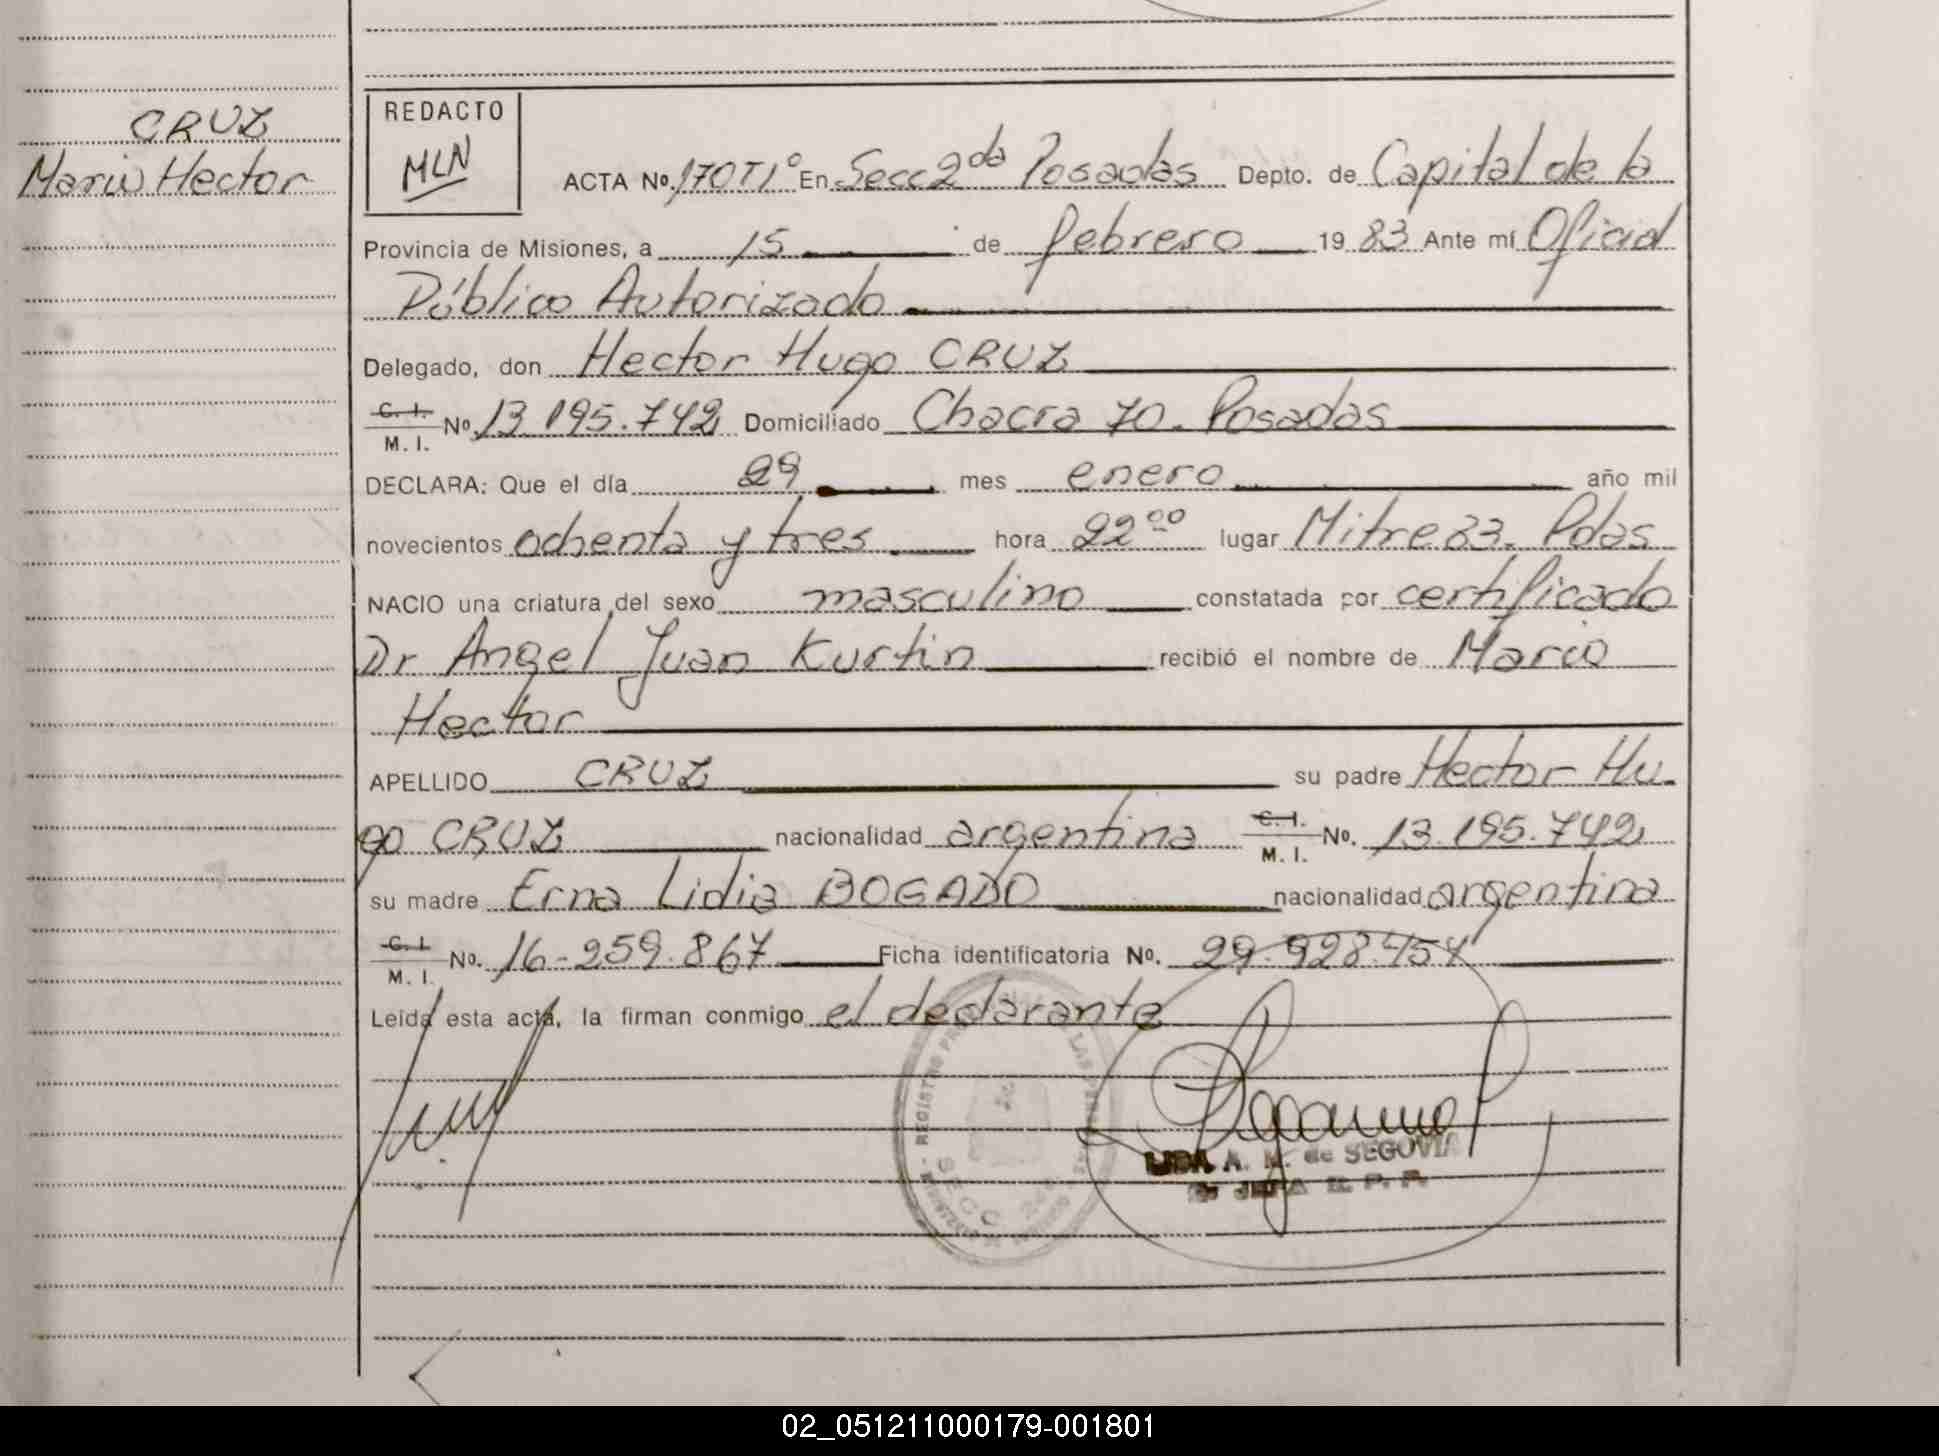 CRUZ
Mario Hector
REDACTO
MLN
ACTA No. 170 T1° En Secc 2da Posadas Depto. de Capital de la
Provincia de Misiones, a 15 de febrero 19 83 Ante mí Oficial
Público Autorizado
Delegado, don Hector Hugo CRUZ
C. I.
M. I. No. 13.195.742 Domiciliado Chacra 70. Posadas
DECLARA: Que el día 29 mes enero año mil
novecientos ochenta y tres hora 22 00 lugar Mitre 83. Pdas
NACIO una criatura del sexo masculino constatada por certificado
Dr Angel Juan Kurtin recibió el nombre de Mario
Hector
APELLIDO CRUZ su padre Hector Hu-
go CRUZ nacionalidad argentina C. I. M. I. No. 13.195.742
su madre Erna Lidia BOGADO nacionalidad argentina
C. I.
M. I. No. 16-259.867 Ficha identificatoria No. 29.928.454
Leída esta acta, la firman conmigo el declarante
REGISTRO
LAS
SECC 2da
LIDA A. M. de SEGOVIA
JEFA R. P. P.
02_051211000179-001801